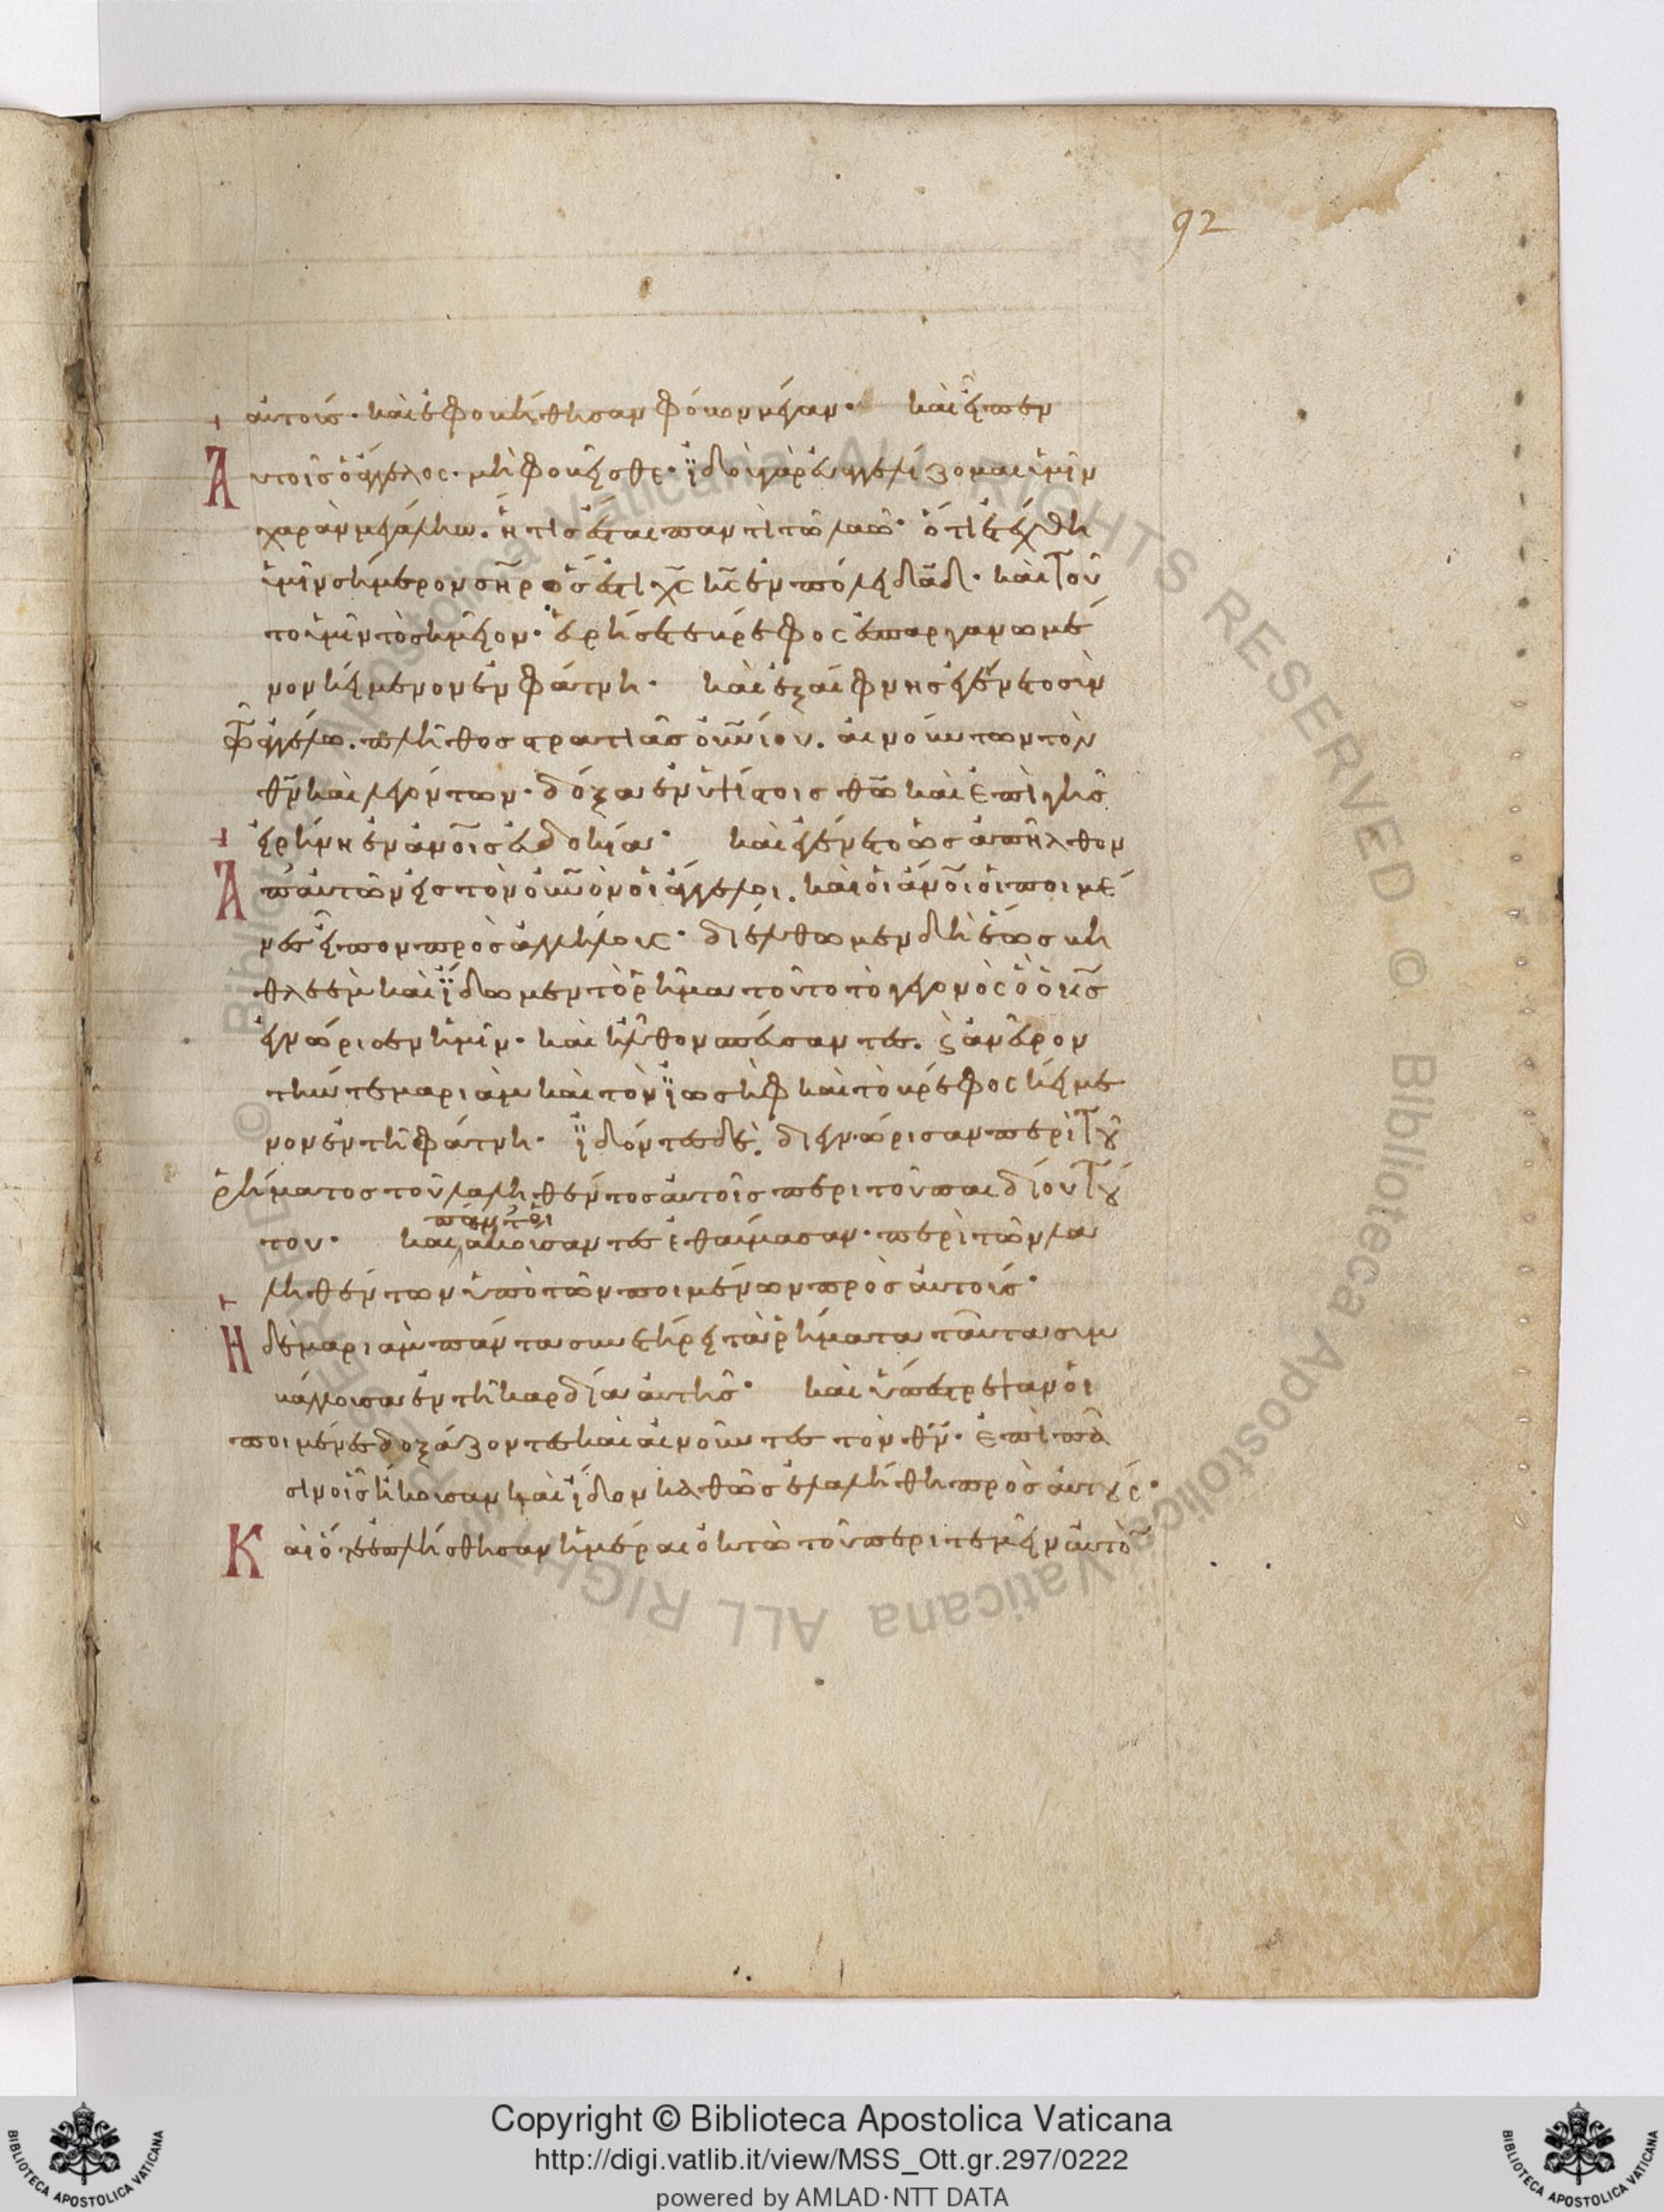 92
αὐτούς· καὶ ἐφοβήθησαν φόβον μέγαν· καὶ εἶπεν
Αὐτοῖς ὁ ἄγγελος· μὴ φοβεῖσθε· ἰδοὺ γὰρ εὐαγγελίζομαι ὑμῖν
χαρὰν μεγάλην. ἥτις ἔσται παντὶ τῷ λαῷ· ὅτι ἐτέχθη
ὑμῖν σήμερον σ̅η̅ρ ὅς ἐστι χ̅ς̅ κ̅ς̅ ἐν πόλει δα̅δ· καὶ τοῦ
το ὑμῖν τὸ σημεῖον· εὑρήσετε βρέφος ἐσπαργανωμέ
νον κείμενον ἐν φάτνῃ· καὶ ἐξαίφνης ἐγένετο σὺν
τῷ ἀγγέλῳ. πλῆθος στρατιᾶς οὐ̅νίου. αἰνούντων τὸν
θ̅ν̅ καὶ λεγόντων· δόξα ἐν ὑψίστοις θ̅ω̅ καὶ ἐπὶ γῆς
εἰρήνη ἐν ἀ̅ν̅οις εὐδοκία· καὶ ἐγένετο ὡς ἀπῆλθον
Ἀπ' αὐτῶν εἰς τὸν οὐ̅νον οἱ ἄγγελοι. καὶ οἱ ἄ̅ν̅οι οἱ ποιμέ
νες εἶπον πρὸς ἀλλήλους· διέλθωμεν δὴ ἕως βη
θλεὲμ καὶ ἴδωμεν τὸ ῥῆμα τοῦτο τὸ γεγονὸς ὃ ὁ κ̅ς̅
ἐγνώρισεν ἡμῖν· καὶ ἦλθον σπεύσαντες. ϗ ἀνεῦρον
τήν τε μαριὰμ καὶ τὸν ἰωσὴφ καὶ τὸ βρέφος κείμε
νον ἐν τῇ φάτνῃ· ἰδόντες δὲ. διεγνώρισαν περὶ τοῦ
ῥήματος τοῦ λαληθέντος αὐτοῖς περὶ τοῦ παιδίου τού
του· καὶ ἀκούσαντες ἐθαύμασαν· περὶ τῶν λα
πάντες οἱ
ληθέντων ὑπὸ τῶν ποιμένων πρὸς αὐτούς·
Ἡ δὲ μαριὰμ πάντα συνετήρει τὰ ῥήματα ταῦτα συμ
βάλλουσα ἐν τῇ καρδίᾳ αὐτῆς· καὶ ὑπέστρεψαν οἱ
ποιμένες δοξάζοντες καὶ αἰνοῦντες τὸν θ̅ν̅· ἐπὶ πᾶ
σιν οἷς ἤκουσαν καὶ εἶδον καθὼς ἐλαλήθη πρὸς αὐτούς·
Καὶ ὅτε ἐπλήσθησαν ἡμέραι ὀκτὼ τοῦ περιτεμεῖν αὐτὸ
Copyright © Biblioteca Apostolica Vaticana
http://digi.vatlib.it/view/MSS_Ott.gr.297/0222
powered by AMLAD·NTT DATA
© Biblioteca Apostolica Vaticana ALL RIGHTS RESERVED © Biblioteca Apostolica Vaticana ALL RIGHTS RESERVED
BIBLIOTECA APOSTOLICA VATICANA
BIBLIOTECA APOSTOLICA VATICANA